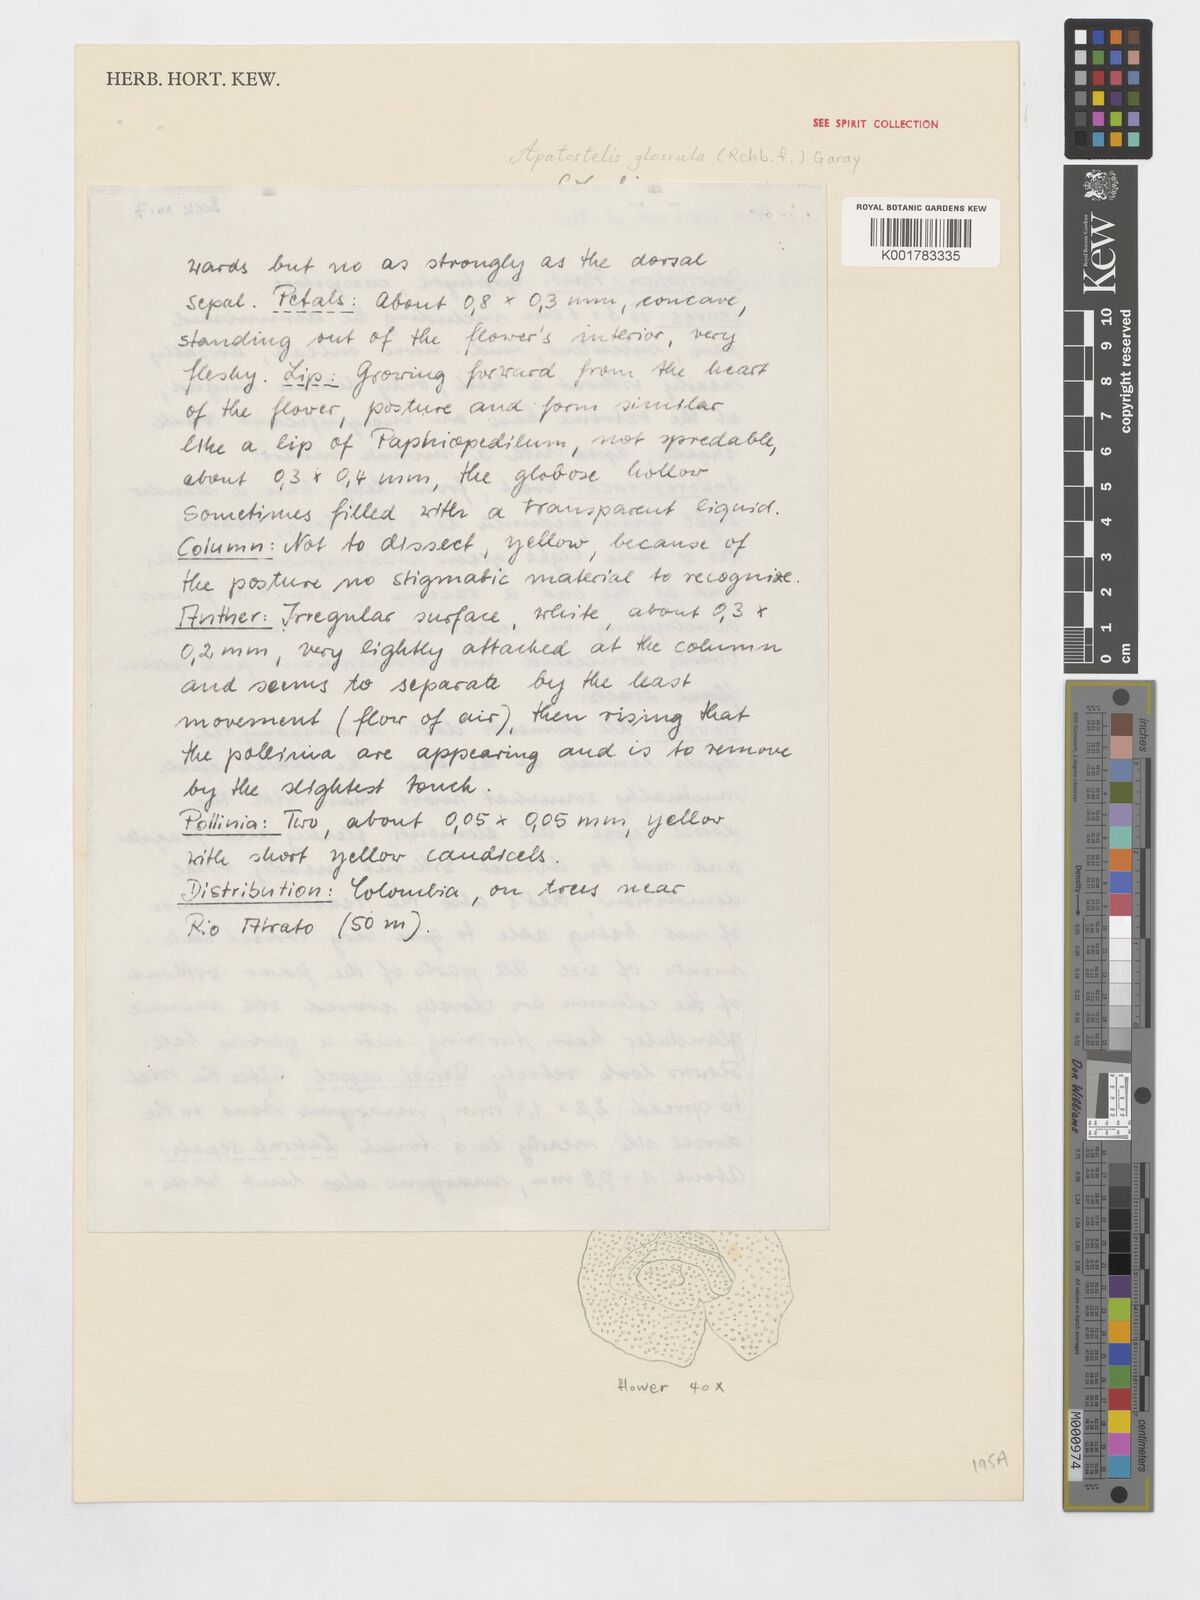 HERB. HORT. KEW.
SEE SPIRIT COLLECTION
Apatostelis glossula (Rchb. f.) Garay
ROYAL BOTANIC GARDENS KEW
K001783335
wards but no as strongly as the dorsal
sepal. Petals: About 0,8 × 0,3 mm, concave,
standing out of the flower's interior, very
fleshy. Lip: Growing forward from the heart
of the flower, posture and form similar
like a lip of Paphiopedilum, not spredable,
about 0,3 × 0,4 mm, the globose hollow
sometimes filled with a transparent liquid.
Column: Not to dissect, yellow, because of
the posture no stigmatic material to recognize.
Anther: Irregular surface, white, about 0,3 ×
0,2 mm, very lightly attached at the column
and seems to separate by the least
movement (flow of air), then rising that
the pollinia are appearing and is to remove
by the slightest touch.
Pollinia: Two, about 0,05 × 0,05 mm, yellow
with short yellow caudicels.
Distribution: Colombia, on trees near
Rio Atrato (50 m).
flower 40 x
195A
Royal Botanic Gardens
Kew
0 1 2 3 4 5 6 7 8 9 10
cm
copyright reserved
inches
Density
Don Williams
centimeters
M000974